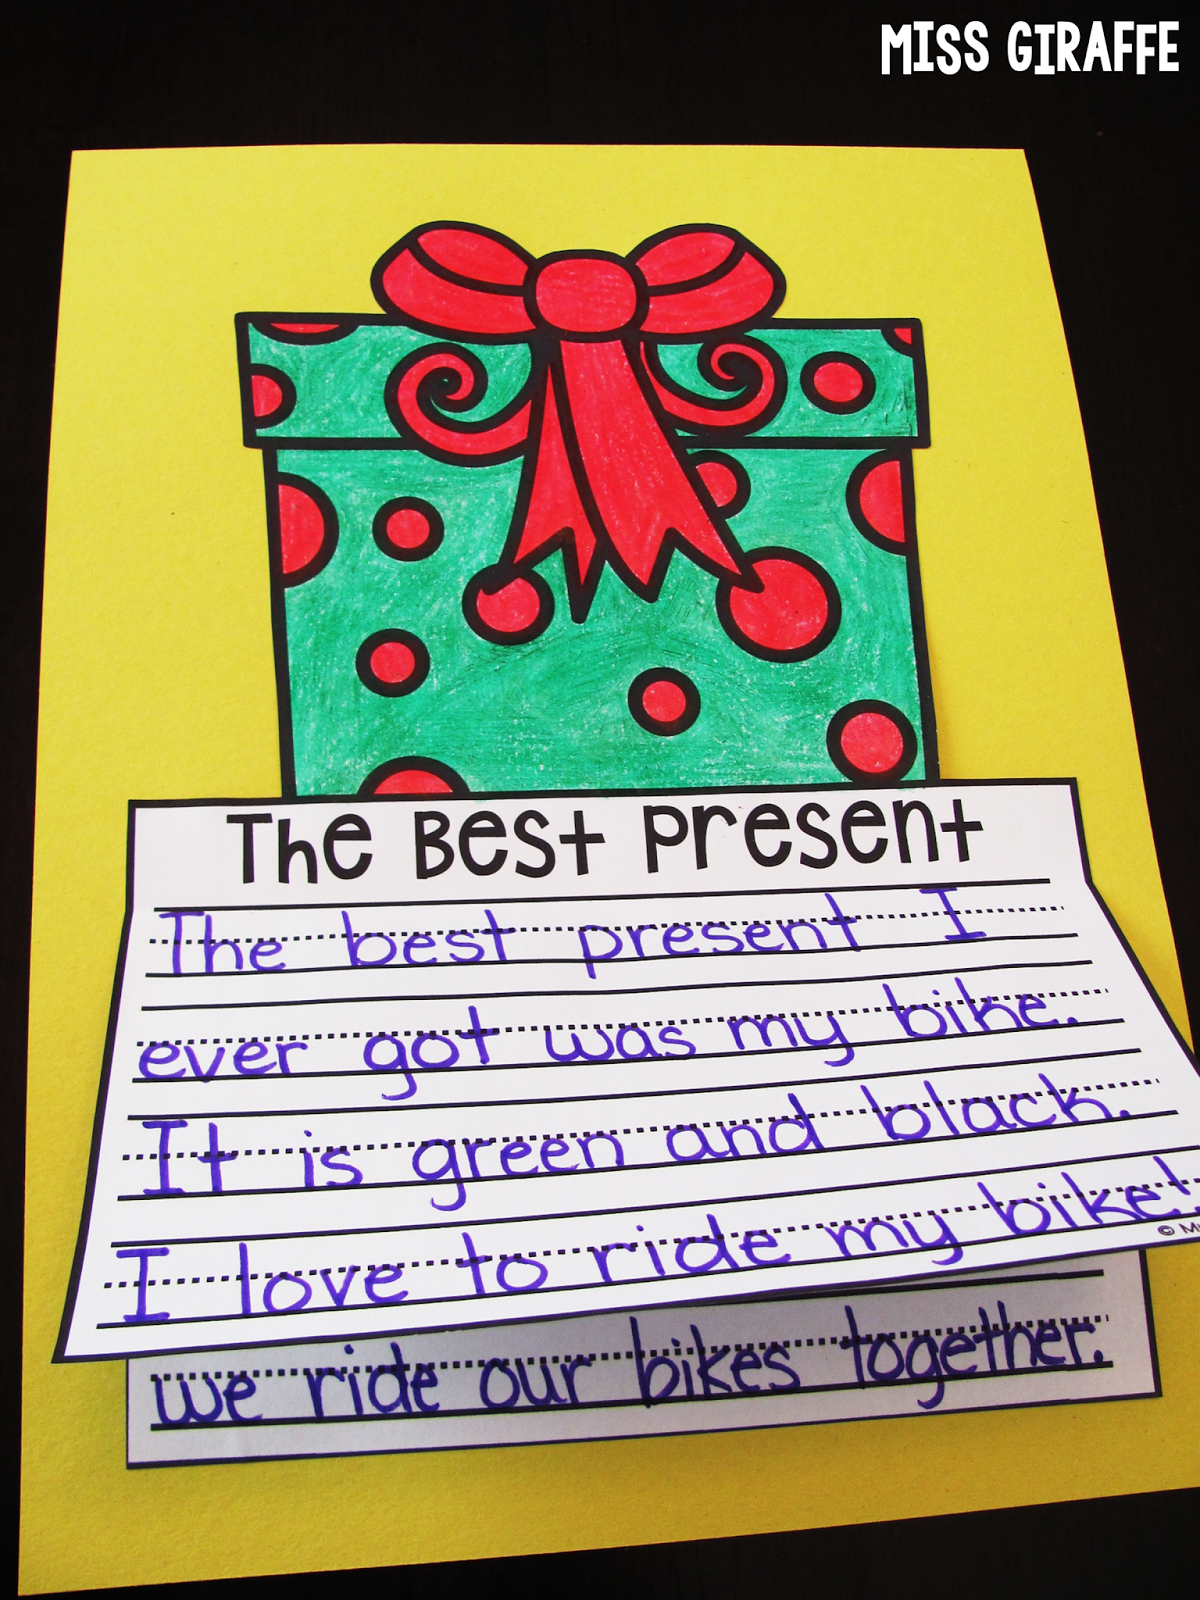 MISS GIRAFFE
The Best Present
The best present I
ever got was my bike.
It is green and black.
I love to ride my bike!
©
we ride our bikes together.